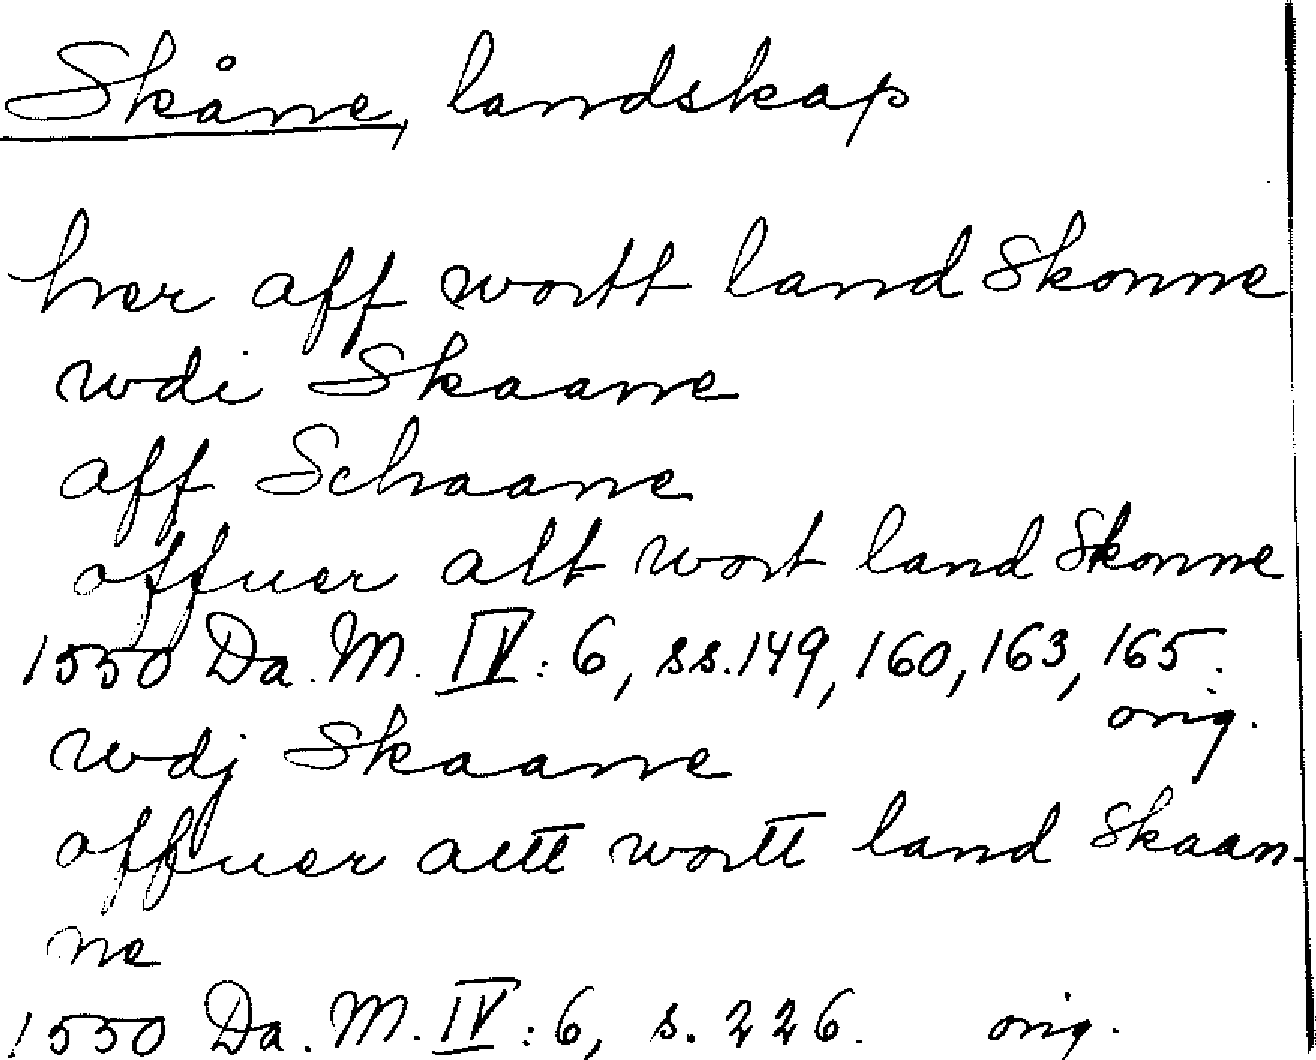 Skåne, landskap
her aff wortt land Skonne
wdi Skaane
aff Schaane
offuer alt wort land Skonne
1550 Da. M. IV: 6, ss. 149, 160, 163, 165.
orig.
wdj Skaane
offuer altt wortt land Skaan-
ne
1550 Da. M. IV: 6, s. 226. orig.